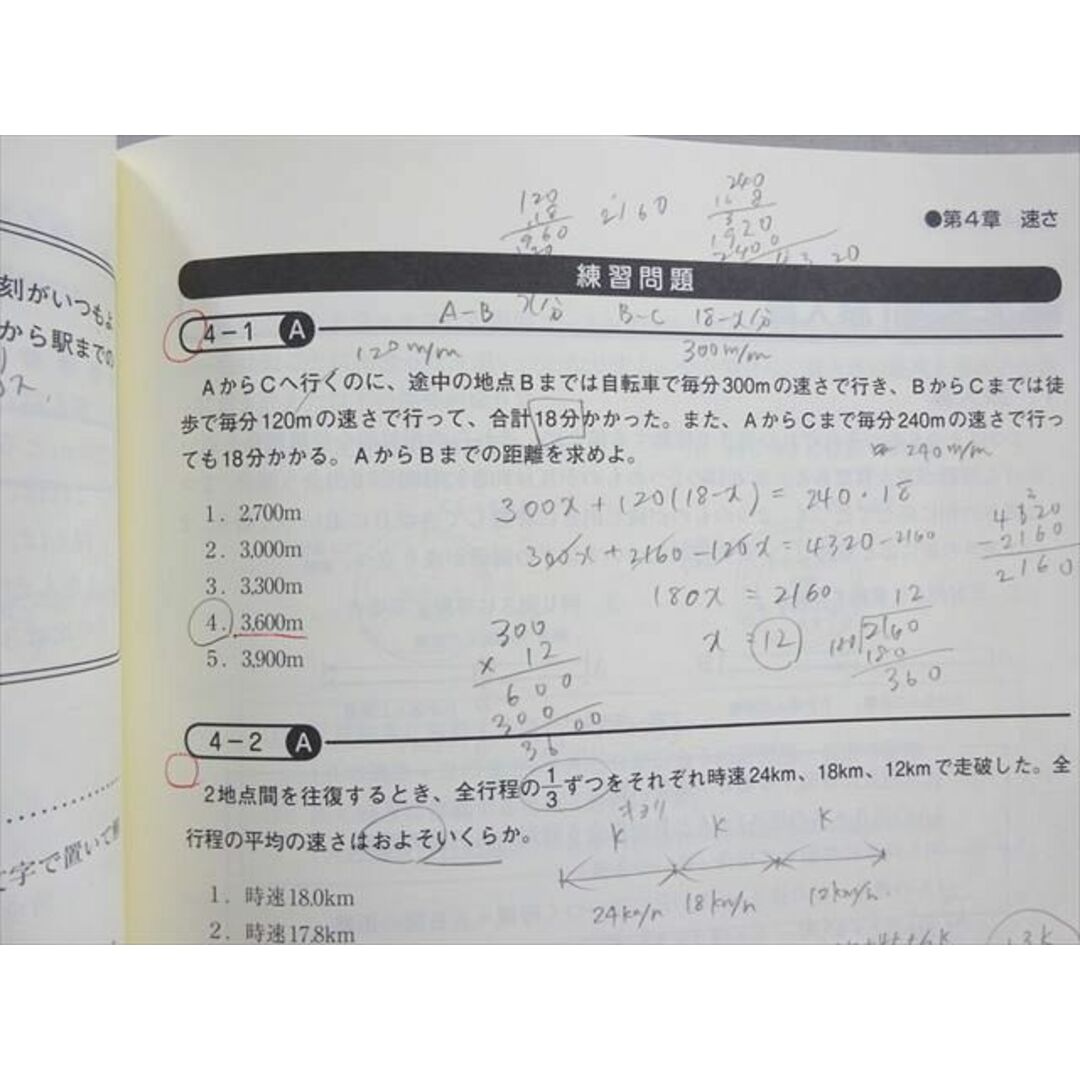 120
18
960
2160
240
18
1920
●第4章 速さ
練習問題
刻がいつもよ
から駅までの
4-1 A
A-B x/分 B-C 18-x/分
120m/m 300m/m
AからCへ行くのに、途中の地点Bまでは自転車で毎分300mの速さで行き、BからCまでは徒
歩で毎分120mの速さで行って、合計18分かかった。また、AからCまで毎分240mの速さで行っ
ても18分かかる。AからBまでの距離を求めよ。
240m/m
1. 2,700m
2. 3,000m
3. 3,300m
4. 3,600m
5. 3,900m
300x+120(18-x)=240・18
300x+2160-120x=4320-2160
180x=2160
x=12
4320
-2160
2160
12
180 2160
180
360
300
× 12
600
300
3600
4-2 A
2地点間を往復するとき、全行程の1/3ずつをそれぞれ時速24km、18km、12kmで走破した。全
行程の平均の速さはおよそいくらか。
キョリ
k k k
24km/h 18km/h 12km/h
1. 時速18.0km
2. 時速17.8km
文字で置いて